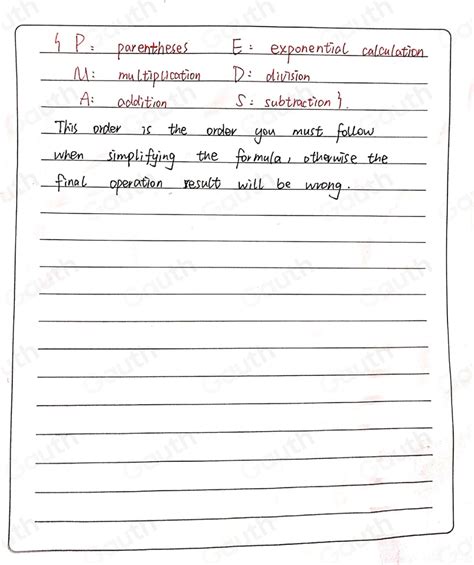 { P: parentheses E: exponential calculation
M: multiplication D: division
A: addition S: subtraction }.
This order is the order you must follow
when simplifying the formula, otherwise the
final operation result will be wrong.